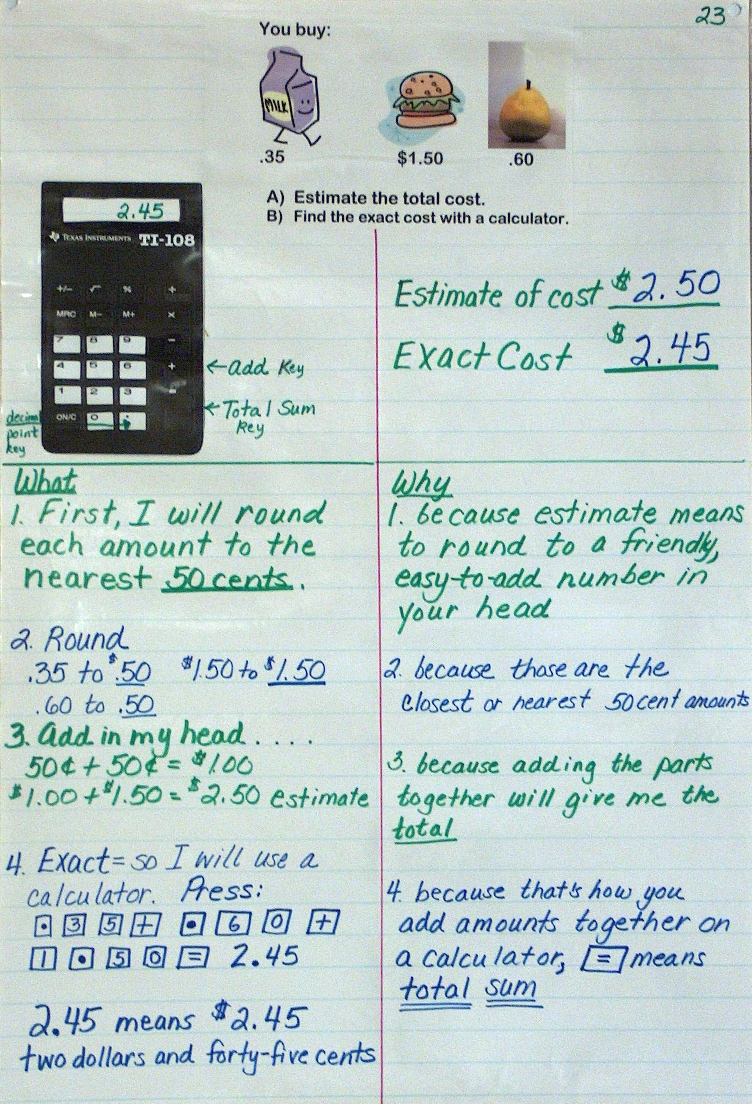 23
You buy:
MILK
.35 $1.50 .60
A) Estimate the total cost.
B) Find the exact cost with a calculator.
2.45
TEXAS INSTRUMENTS TI-108
+/- √ % ÷
MRC M- M+ ×
7 8 9 -
4 5 6 +
1 2 3 =
ON/C 0 .
← Add Key
← Total Sum
Key
decimal
point
key
Estimate of cost $2.50
Exact Cost $2.45
What
1. First, I will round
each amount to the
nearest 50 cents.
2. Round
.35 to $.50 $1.50 to $1.50
.60 to .50
3. Add in my head....
50¢ + 50¢ = $1.00
$1.00 + $1.50 = $2.50 estimate
4. Exact = so I will use a
calculator. Press:
. 3 5 + . 6 0 +
1 . 5 0 = 2.45
2.45 means $2.45
two dollars and forty-five cents
Why
1. because estimate means
to round to a friendly,
easy-to-add number in
your head
2. because those are the
closest or nearest 50 cent amounts
3. because adding the parts
together will give me the
total
4. because that's how you
add amounts together on
a calculator, = means
total sum